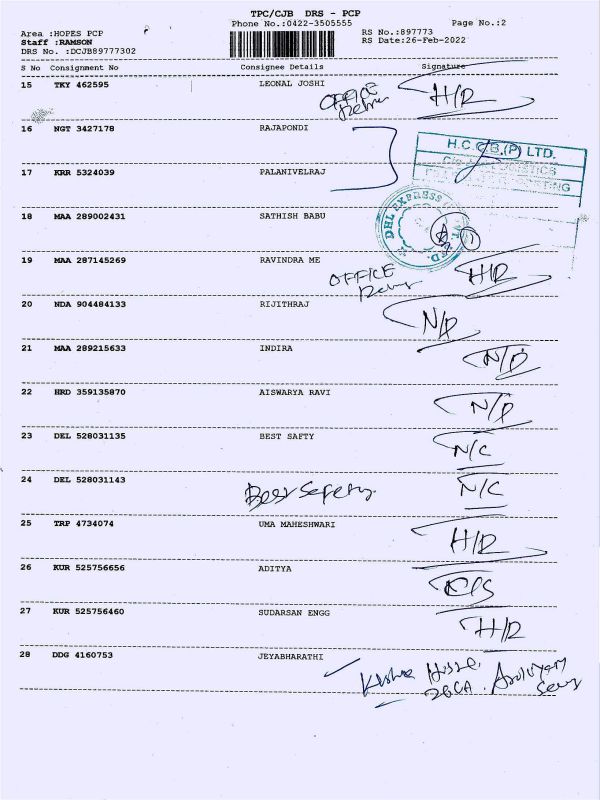 TPC/CJB DRS - PCP
Phone No.:0422-3505555
Page No.:2
Area :HOPES PCP
Staff :RAMSON
DRS No. :DCJB89777302
RS No.:897773
RS Date:26-Feb-2022
S No Consignment No Consignee Details Signature
15 TKY 462595 LEONAL JOSHI
OFFICE
H/R
16 NGT 3427178 RAJAPONDI
H.C. C.B.(P) LTD.
17 KRR 5324039 PALANIVELRAJ
DHL EXPRESS
18 MAA 289002431 SATHISH BABU
19 MAA 287145269 RAVINDRA ME
OFFICE
H/R
20 NDA 904484133 RIJITHRAJ
N/P
21 MAA 289215633 INDIRA
N/P
22 HRD 359135870 AISWARYA RAVI
N/P
23 DEL 528031135 BEST SAFTY
N/C
24 DEL 528031143
Best Safety
N/C
25 TRP 4734074 UMA MAHESHWARI
H/R
26 KUR 525756656 ADITYA
27 KUR 525756460 SUDARSAN ENGG
H/R
28 DDG 4160753 JEYABHARATHI